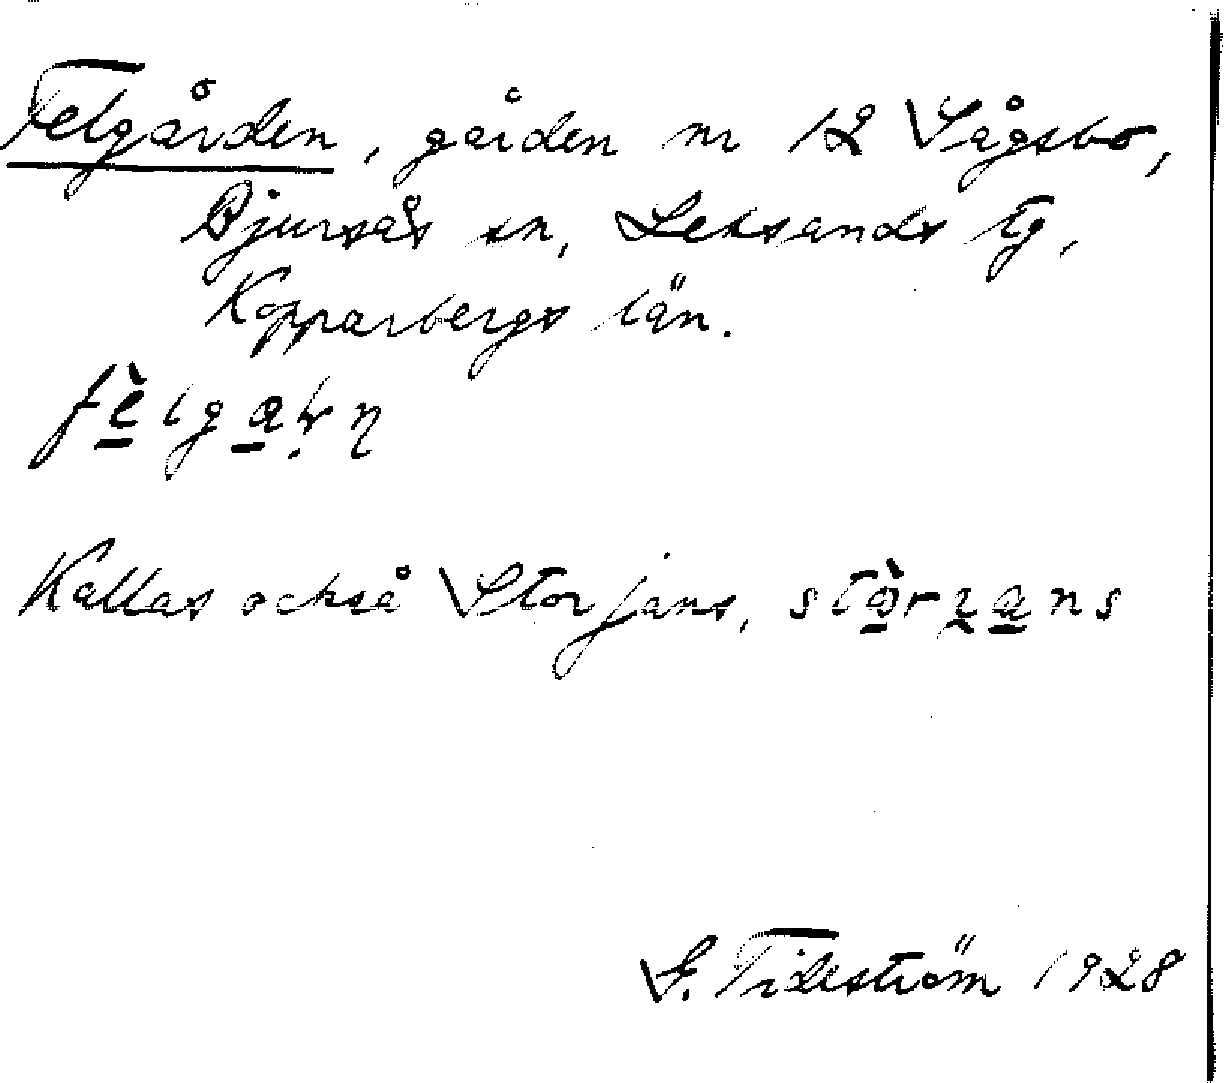 Felgården, gården nr 12 \Sågsbo,
Bjursås sn, Leksands tg,
Kopparbergs län.
fèlgaṛn
Kallas också \Storjans, stòrzans
G. Tideström 1928